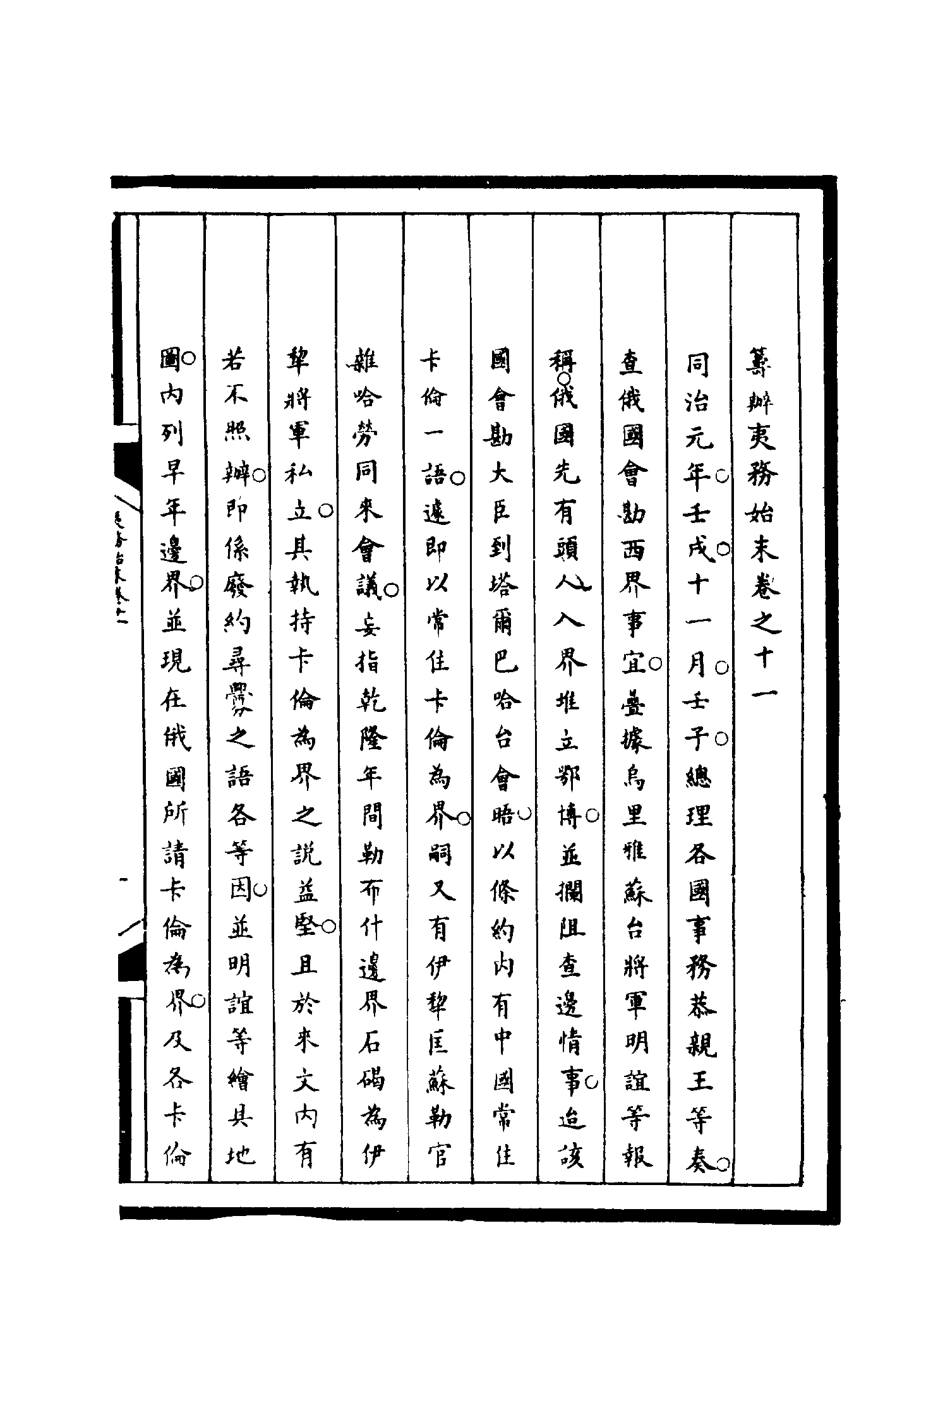 籌辦夷務始末卷之十一
同治元年○壬戌○十一月○壬子○總理各國事務恭親王等奏○
查俄國會勘西界事宜○疊據烏里雅蘇台將軍明誼等報
稱○俄國先有頭人入界堆立鄂博○並攔阻查邊情事○迨該
國會勘大臣到塔爾巴哈台會晤○以條約內有中國常住
卡倫一語○遽即以常住卡倫為界○嗣又有伊犂匡蘇勒官
雜哈勞同來會議○妄指乾隆年間勒布什邊界石碣為伊
犂將軍私立○其執持卡倫為界之說益堅○且於來文內有
若不照辦○即係廢約尋釁之語各等因○並明誼等繪具地
圖○內列早年邊界○並現在俄國所請卡倫為界○及各卡倫
夷務始末卷十一
一